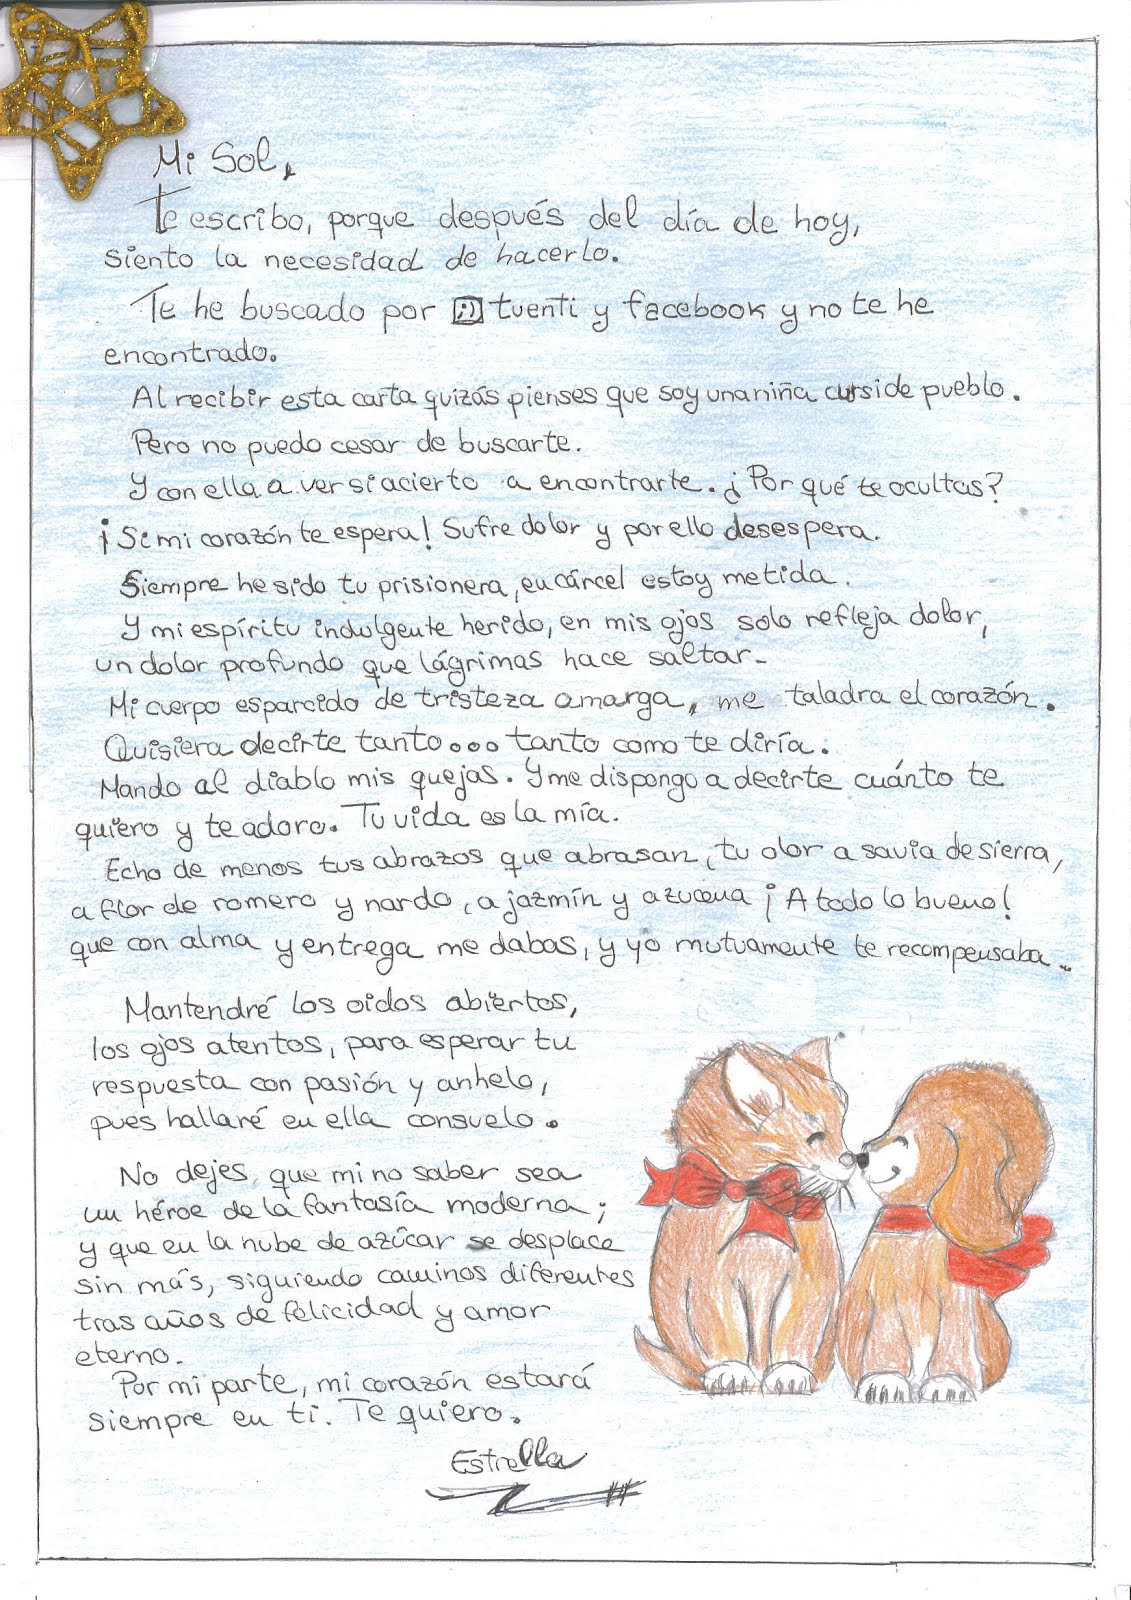 Mi Sol,
Te escribo, porque después del día de hoy,
siento la necesidad de hacerlo.
Te he buscado por :) tuenti y facebook y no te he
encontrado.
Al recibir esta carta quizás pienses que soy una niña cursi de pueblo.
Pero no puedo cesar de buscarte.
Y con ella a ver si acierto a encontrarte. ¿Por qué te ocultas?
¡Si mi corazón te espera! Sufre dolor y por ello desespera.
Siempre he sido tu prisionera, en cárcel estoy metida.
Y mi espíritu indulgente herido, en mis ojos solo refleja dolor,
un dolor profundo que lágrimas hace saltar.
Mi cuerpo esparcido de tristeza amarga, me taladra el corazón.
Quisiera decirte tanto... tanto como te diría.
Mando al diablo mis quejas. Y me dispongo a decirte cuánto te
quiero y te adoro. Tu vida es la mía.
Echo de menos tus abrazos que abrasan, tu olor a savia de sierra,
a flor de romero y nardo, a jazmín y azucena ¡A todo lo bueno!
que con alma y entrega me dabas, y yo mutuamente te recompensaba.
Mantendré los oidos abiertos,
los ojos atentos, para esperar tu
respuesta con pasión y anhelo,
pues hallaré en ella consuelo.
No dejes, que mi no saber sea
un héroe de la fantasía moderna;
y que en la nube de azúcar se desplace
sin más, siguiendo caminos diferentes
tras años de felicidad y amor
eterno.
Por mi parte, mi corazón estará
siempre en ti. Te quiero.
Estrella